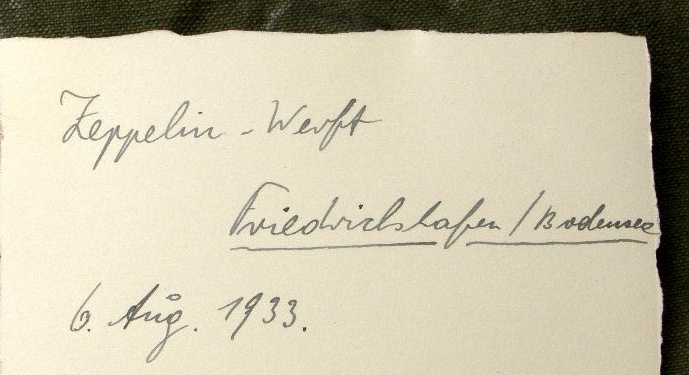 Zeppelin-Werft
Friedrichshafen/Bodensee
6. Aug. 1933.